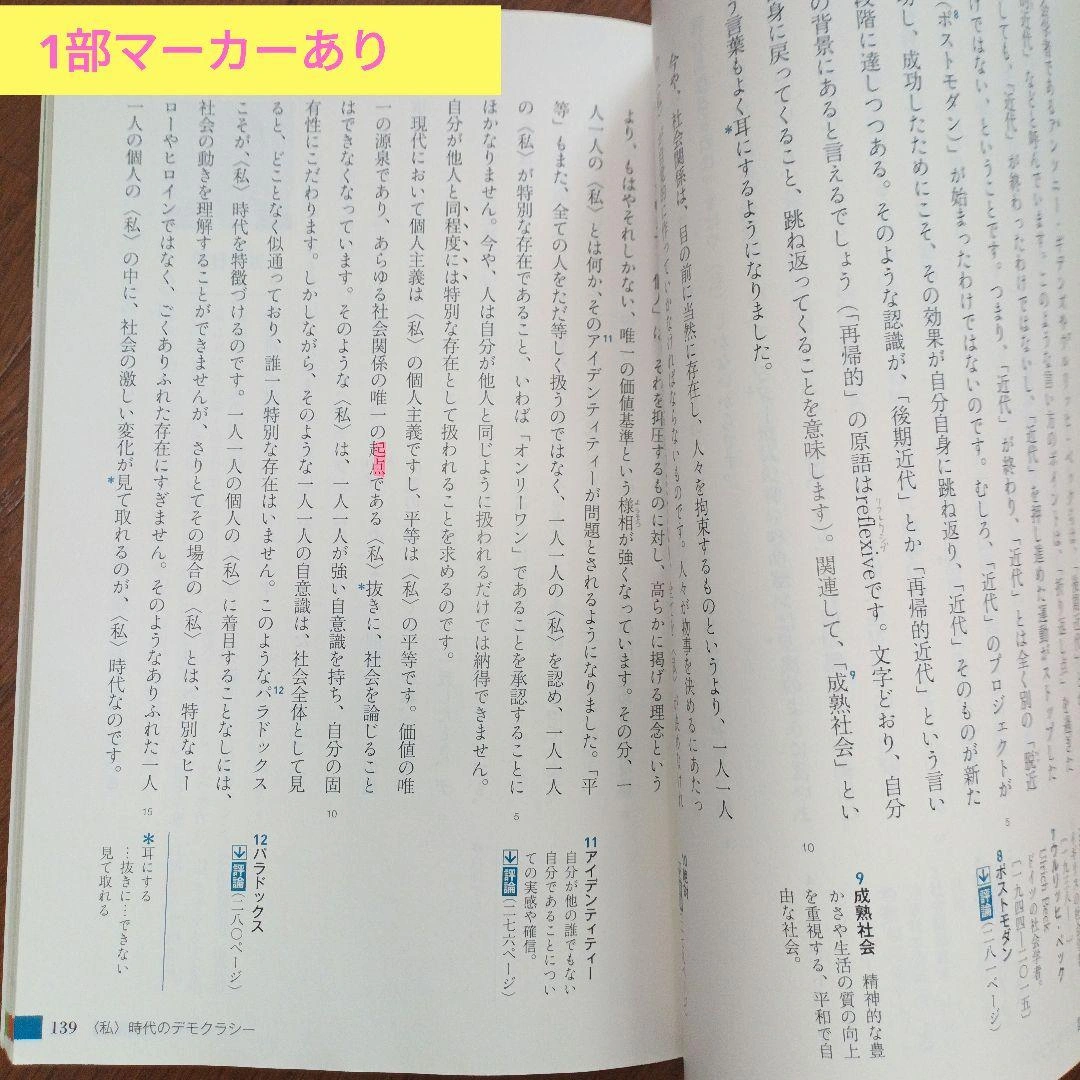 1部マーカーあり
しても、「近代」が終わったわけではないし、「近代」を押し進めた運動がストップした
けではない、ということです。つまり、「近代」が終わり、「近代」とは全く別の「脱近
（ポストモダン）が始まったわけではないのです。むしろ、「近代」のプロジェクトが
功し、成功したためにこそ、その効果が自分自身に跳ね返り、「近代」そのものが新た
段階に達しつつある。そのような認識が、「後期近代」とか「再帰的近代」という言い
の背景にあると言えるでしょう（「再帰的」の原語はreflexiveです。文字どおり、自分
身に戻ってくること、跳ね返ってくることを意味します）。関連して、「成熟社会」とい
う言葉もよく耳にするようになりました。
今や、社会関係は、目の前に当然に存在し、人々を拘束するものというより、一人一人
5
10
8 ポストモダン
評論（二八一ページ）
9 成熟社会　精神的な豊
かさや生活の質の向上
を重視する、平和で自
由な社会。
は、それを抑圧するものに対し、高らかに掲げる理念という
より、もはやそれしかない、唯一の価値基準という様相が強くなっています。その分、一
人一人の〈私〉とは何か、そのアイデンティティーが問題とされるようになりました。「平
等」もまた、全ての人をただ等しく扱うのではなく、一人一人の〈私〉を認め、一人一人
の〈私〉が特別な存在であること、いわば「オンリーワン」であることを承認することに
ほかなりません。今や、人は自分が他人と同じように扱われるだけでは納得できません。
自分が他人と同程度には特別な存在として扱われることを求めるのです。
現代において個人主義は〈私〉の個人主義ですし、平等は〈私〉の平等です。価値の唯
一の源泉であり、あらゆる社会関係の唯一の起点である〈私〉抜きに、社会を論じること
はできなくなっています。そのような〈私〉は、一人一人が強い自意識を持ち、自分の固
有性にこだわります。しかしながら、そのような一人一人の自意識は、社会全体として見
ると、どことなく似通っており、誰一人特別な存在はいません。このようなパラドックス
こそが、〈私〉時代を特徴づけるのです。一人一人の個人の〈私〉に着目することなしには、
社会の動きを理解することができませんが、さりとてその場合の〈私〉とは、特別なヒー
ローやヒロインではなく、ごくありふれた存在にすぎません。そのようなありふれた一人
一人の個人の〈私〉の中に、社会の激しい変化が見て取れるのが、〈私〉時代なのです。
5
10
15
11 アイデンティティー
自分が他の誰でもない
自分であることについ
ての実感や確信。
評論（二七六ページ）
12 パラドックス
評論（二八〇ページ）
＊耳にする
…抜きに…できない
見て取れる
139 〈私〉時代のデモクラシー